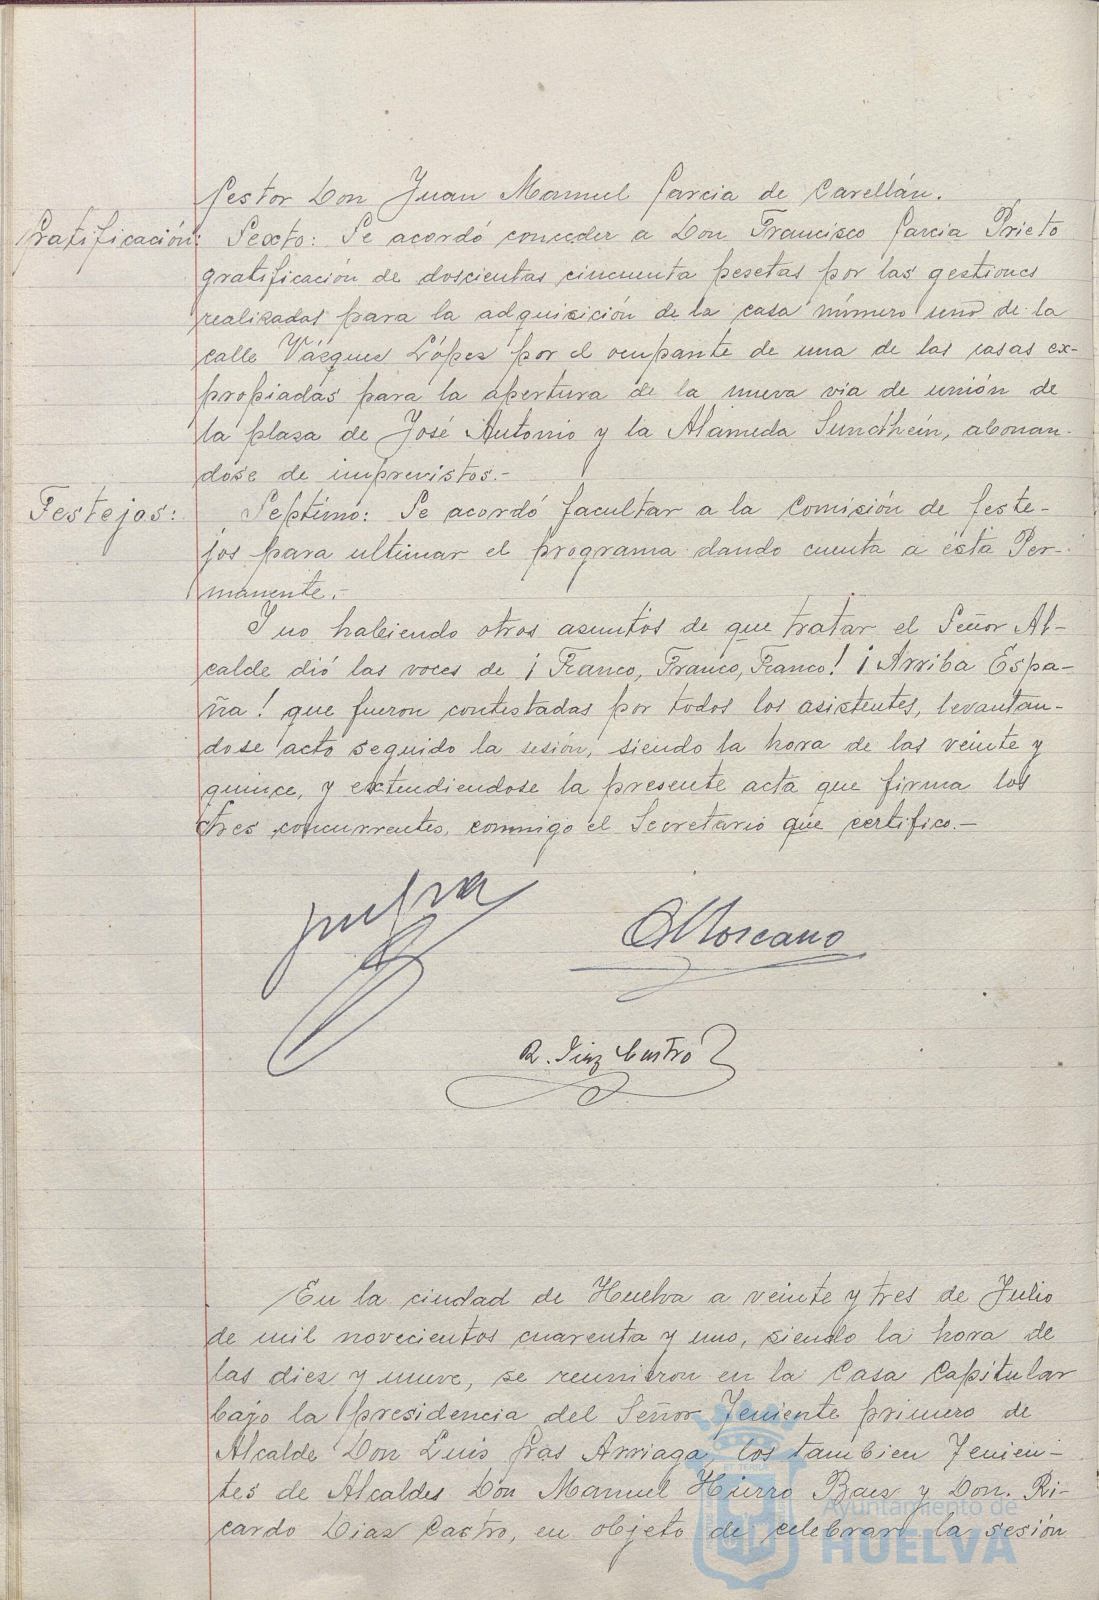 Gestor Don Juan Manuel Garcia de Carellán.
Gratificación: Sexto: Se acordó conceder a Don Francisco Garcia Prieto
gratificación de doscientas cincuenta pesetas por las gestiones
realizadas para la adquisición de la casa número uno de la
calle Vázquez López por el ocupante de una de las casas ex-
propiadas para la apertura de la nueva via de unión de
la plaza de José Antonio y la Alameda Sundheín, abonan-
dose de imprevistos.-
Festejos: Septimo: Se acordó facultar a la Comisión de feste-
jos para ultimar el programa dando cuenta a ésta Per-
manente.-
Y no habiendo otros asuntos de que tratar el Señor Al-
calde dió las voces de ¡Franco, Franco, Franco! ¡Arriba Espa-
ña! que fueron contestadas por todos los asistentes, levantan-
dose acto seguido la sesión, siendo la hora de las veinte y
quince, y extendiendose la presente acta que firma los
tres concurrentes, conmigo el Secretario que certifico.-
R. Diaz Castro
En la ciudad de Huelva a veinte y tres de Julio
de mil novecientos cuarenta y uno, siendo la hora de
las diez y nueve, se reunieron en la Casa Capitular
bajo la presidencia del Señor Teniente primero de
Alcalde Don Luis Gras Arriaga, los tambien Tenien-
tes de Alcaldes Don Manuel Hierro Baez y Don. Ri-
cardo Diaz Castro, en objeto de celebrar la sesión
Ayuntamiento de
HUELVA